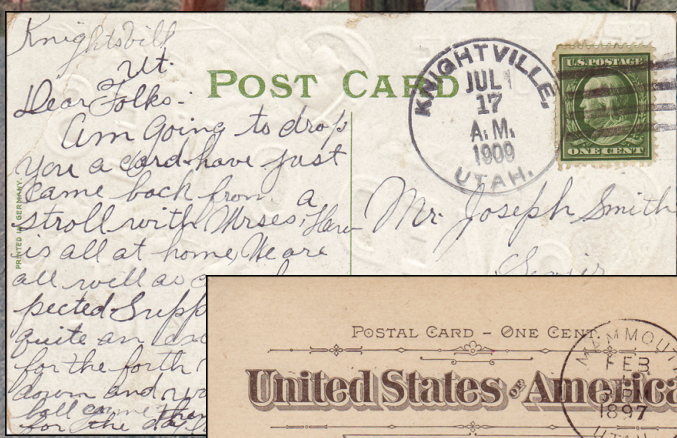 Knightsvill
Ut.
POST CARD
Dear Folks.
am going to drop
you a card have just
came back from a
stroll with Mrses.
is all at home We are
all well as
pected Supp
quite an
for the forth
down and
ball
for the da
PRINTED IN GERMANY.
KNIGHTVILLE,
JUL
17
A.M.
1909
UTAH.
U.S. POSTAGE
ONE CENT
Mr. Joseph Smith
POSTAL CARD – ONE CENT
United States of America
FEB
1897